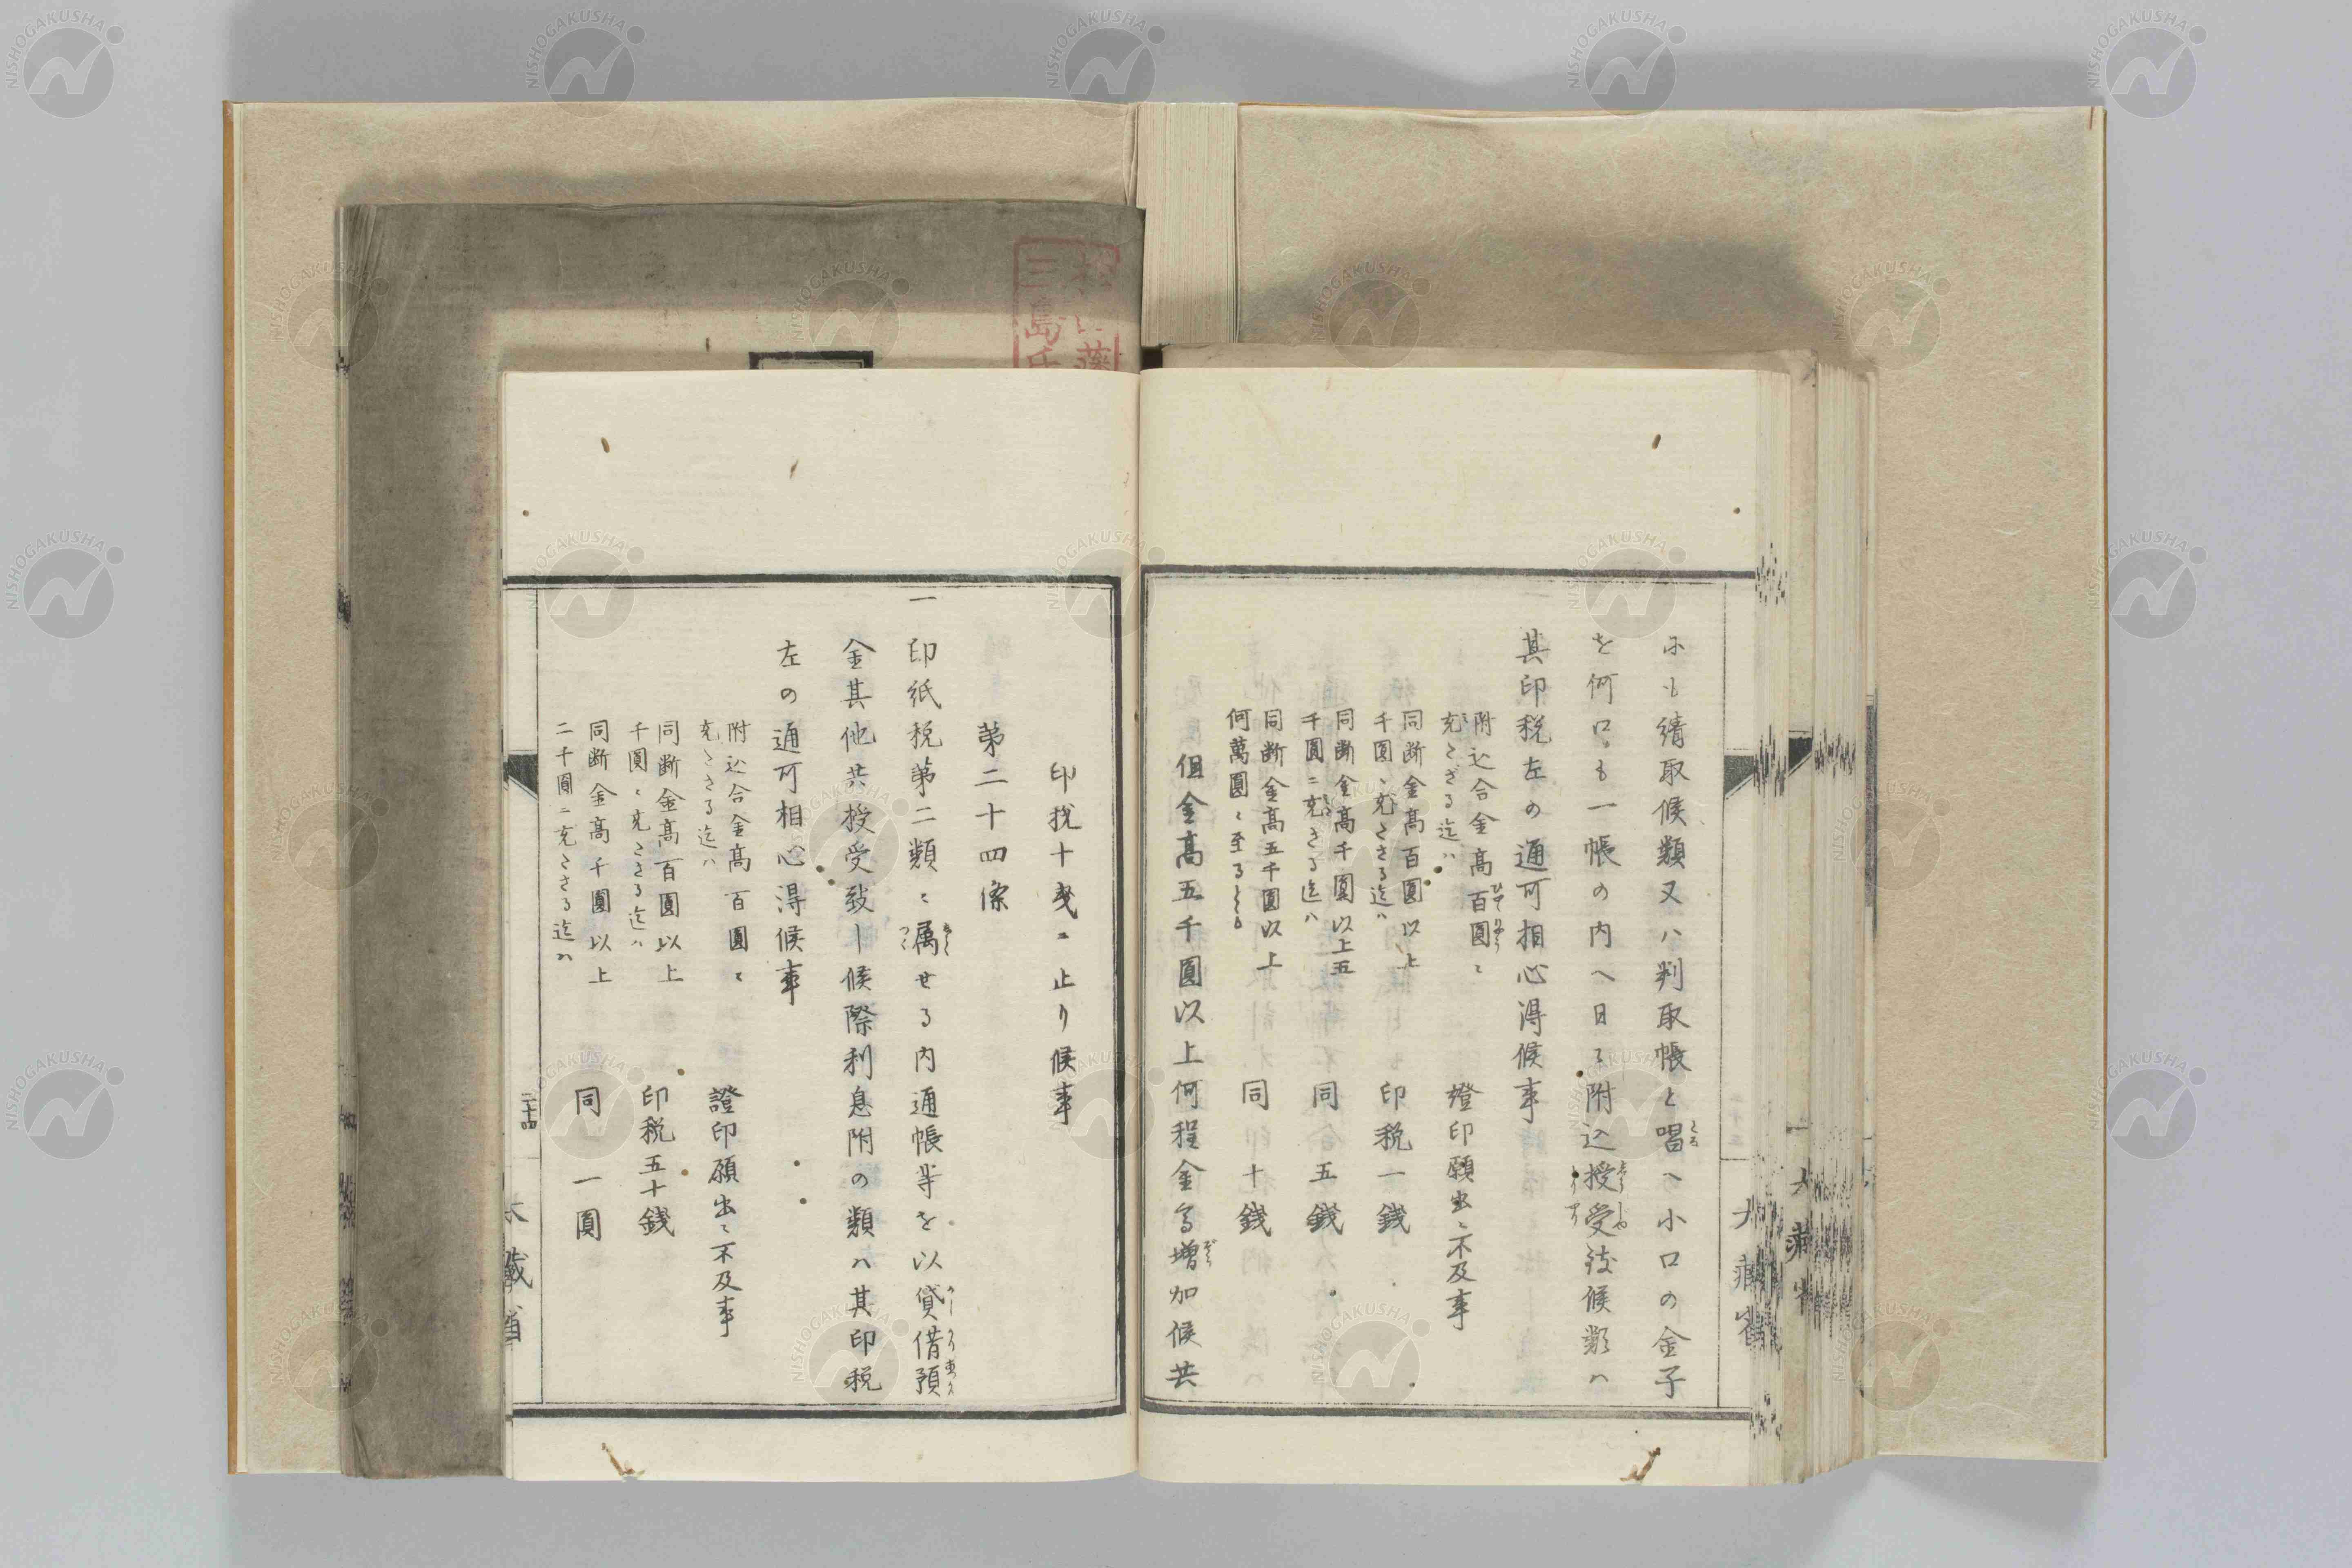 にも請取候類又ハ判取帳と唱へ小口の金子
を何口も一帳の内へ日々附込授受致候類ハ
其印税左の通可相心得候事
附込合金高百圓ニ
充たざる迄ハ
證印願出ニ不及事
同断金高百圓以上
千圓ニ充たさる迄ハ
印税一銭
同断金高千圓以上五
千圓ニ充さる迄ハ
同五銭
同断金高五千圓以上
何萬圓ニ至るとも
同十銭
但金高五千圓以上何程金高増加候共
大蔵省
印税十銭ニ止り候事
第二十四条
一印紙税第二類ニ属せる内通帳等を以貸借預
金其他共授受致し候際利息附の類ハ其印税
左の通可相心得候事
附込合金高百圓ニ
充たさる迄ハ
證印願出ニ不及事
同断金高百圓以上
千圓ニ充たさる迄ハ
印税五十銭
同断金高千圓以上
二千圓ニ充たさる迄ハ
同一圓
二十四
大蔵省
三島
NISHOGAKUSHA